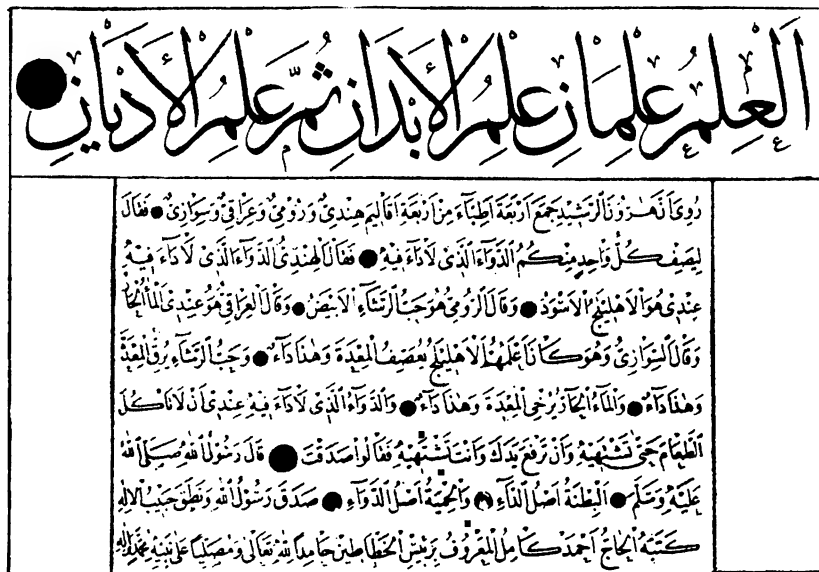 اَلْعِلْمُ عِلْمَانِ عِلْمُ الْأَبْدَانِ ثُمَّ عِلْمُ الْأَدْيَانِ
رُوِيَ اَنَّ هٰرُونَ الرَّشِيْدَ جَمَعَ اَرْبَعَةَ اَطِبَّاءَ مِنْ اَرْبَعَةِ اَقَالِيْمَ هِنْدِيٌّ وَرُوْمِيٌّ وَعِرَاقِيٌّ وَسِوَازِيٌّ فَقَالَ
لِيَصِفْ كُلُّ وَاحِدٍ مِنْكُمُ الدَّوَاءَ الَّذِيْ لَادَاءَ فِيْهِ فَقَالَ الْهِنْدِيُّ الدَّوَاءُ الَّذِيْ لَادَاءَ فِيْهِ
عِنْدِيْ هُوَ الْاَهْلِيْلَجُ الْاَسْوَدُ وَقَالَ الرُّوْمِيُّ هُوَ حَبُّ الرَّشَاءِ الْاَبْيَضُ وَقَالَ الْعِرَاقِيُّ هُوَ عِنْدِيْ الْمَاءُ الْحَارُّ
وَقَالَ السِّوَازِيُّ وَهُوَ كَانَ اَعْلَمَهُمْ الْاَهْلِيْلَجُ يُعَصِفُ الْمَعِدَةَ وَهٰذَا دَاءٌ وَحَبُّ الرَّشَاءِ يُرِقُّ الْمَعِدَةَ
وَهٰذَا دَاءٌ وَالْمَاءُ الْحَارُّ يُرْخِي الْمَعِدَةَ وَهٰذَا دَاءٌ وَالدَّوَاءُ الَّذِيْ لَادَاءَ فِيْهِ عِنْدِيْ اَنْ لَا تَأْكُلَ
الطَّعَامَ حَتّٰى تَشْتَهِيَهُ وَاَنْ تَرْفَعَ يَدَكَ وَاَنْتَ تَشْتَهِيْهِ فَقَالُوا صَدَقْتَ قَالَ رَسُوْلُ اللّٰهِ صَلَّى اللّٰهُ
عَلَيْهِ وَسَلَّمَ اَلْبِطْنَةُ اَصْلُ الدَّاءِ وَالْحِمْيَةُ اَصْلُ الدَّوَاءِ صَدَقَ رَسُوْلُ اللّٰهِ وَنَطَقَ حَبِيْبُ الْاِلٰهِ
كَتَبَهُ الْحَاجُّ اَحْمَدْ كَامِلُ الْمَعْرُوْفُ بِرَئِيْسِ الْخَطَّاطِيْنَ حَامِدًا لِلّٰهِ تَعَالٰى وَمُصَلِّيًا عَلٰى نَبِيِّهِ مُحَمَّدٍ وَاٰلِهِ